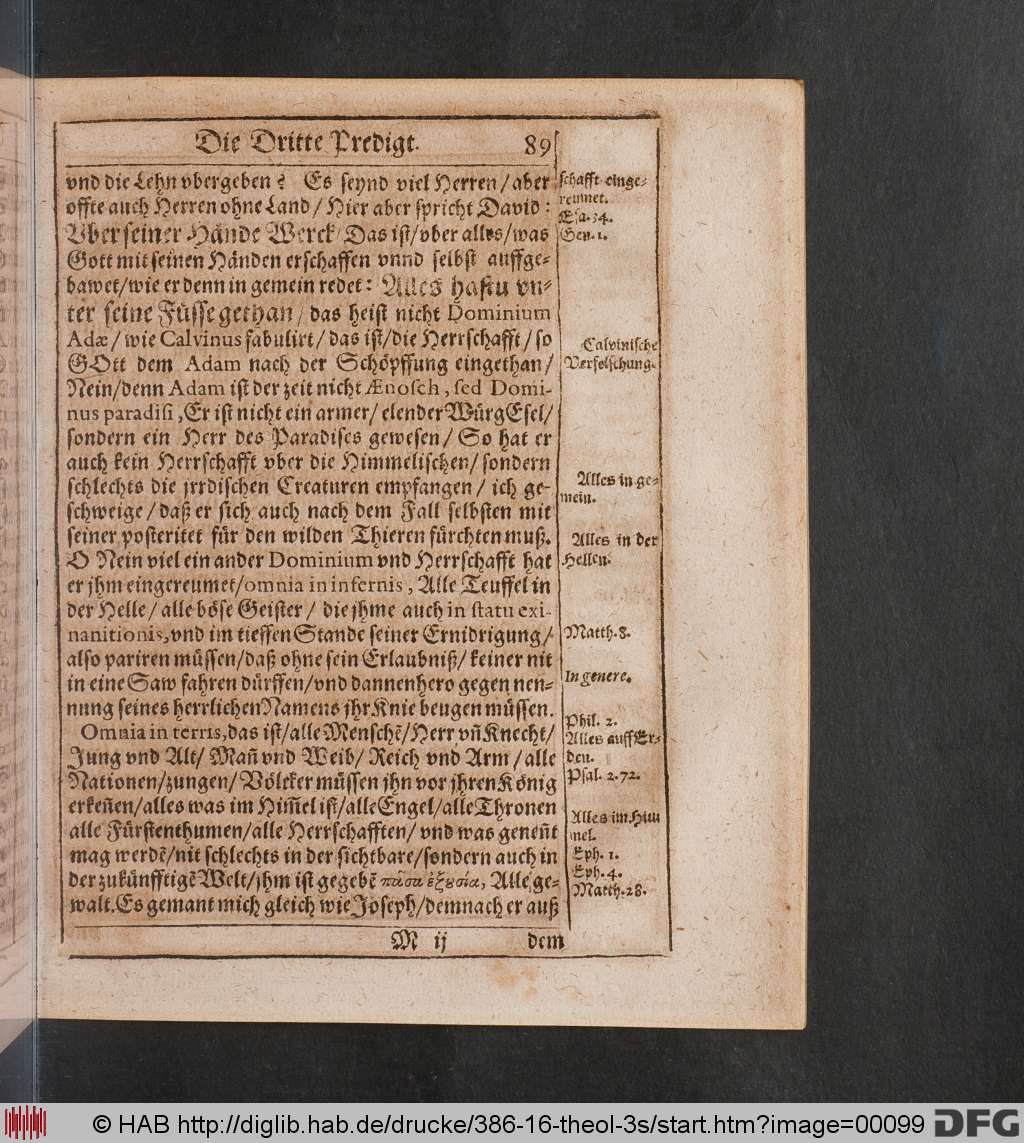 Die Dritte Predigt. 89
vnd die Lehn vbergeben? Es seynd viel Herren/aber
offte auch Herren ohne Land/Hier aber spricht David:
Vber seiner Hände Werck/Das ist/vber alles/was
Gott mit seinen Händen erschaffen vnnd selbst auffge-
bawet/wie er denn in gemein redet: Alles hastu vn-
ter seine Füsse gethan/das heist nicht Dominium
Adæ/wie Calvinus fabulirt/das ist/die Herrschafft/so
GOtt dem Adam nach der Schöpffung eingethan/
Nein/denn Adam ist der zeit nicht Ænosch, sed Domi-
nus paradisi, Er ist nicht ein armer/elender WürgEsel/
sondern ein Herr des Paradises gewesen/So hat er
auch kein Herrschafft vber die Himmelischen/sondern
schlechts die jrrdischen Creaturen empfangen/ich ge-
schweige/daß er sich auch nach dem Fall selbsten mit
seiner posteritet für den wilden Thieren fürchten muß.
O Nein viel ein ander Dominium vnd Herrschafft hat
er jhm eingereumet/omnia in infernis, Alle Teuffel in
der Helle/alle böse Geister/die jhme auch in statu exi-
nanitionis, vnd im tieffen Stande seiner Ernidrigung/
also pariren müssen/daß ohne sein Erlaubniß/keiner nit
in eine Saw fahren dürffen/vnd dannenhero gegen nen-
nung seines herrlichen Namens jhr Knie beugen müssen.
Omnia in terris, das ist/alle Menschẽ/Herr vñ Knecht/
Jung vnd Alt/Mañ vnd Weib/Reich vnd Arm/alle
Nationen/zungen/Völcker müssen jhn vor jhren König
erkeñen/alles was im Him̃el ist/alle Engel/alle Thronen
alle Fürstenthumen/alle Herrschafften/vnd was geneñt
mag werdẽ/nit schlechts in der sichtbare/sondern auch in
der zukünfftigẽ Welt/jhm ist gegebẽ πᾶσα ἐξουσία, Alle ge-
walt. Es gemant mich gleich wie Joseph/demnach er auß
M ij dem
schafft einge-
reumet.
Esa. 34.
Gen. 1.
Calvinische
Verfelschung.
Alles in ge-
mein.
Alles in der
Hellen.
Matth. 8.
In genere.
Phil. 2.
Alles auff Er-
den.
Psal. 2. 72.
Alles im Him
mel.
Eph. 1.
Eph. 4.
Matth. 28.
© HAB http://diglib.hab.de/drucke/386-16-theol-3s/start.htm?image=00099 DFG